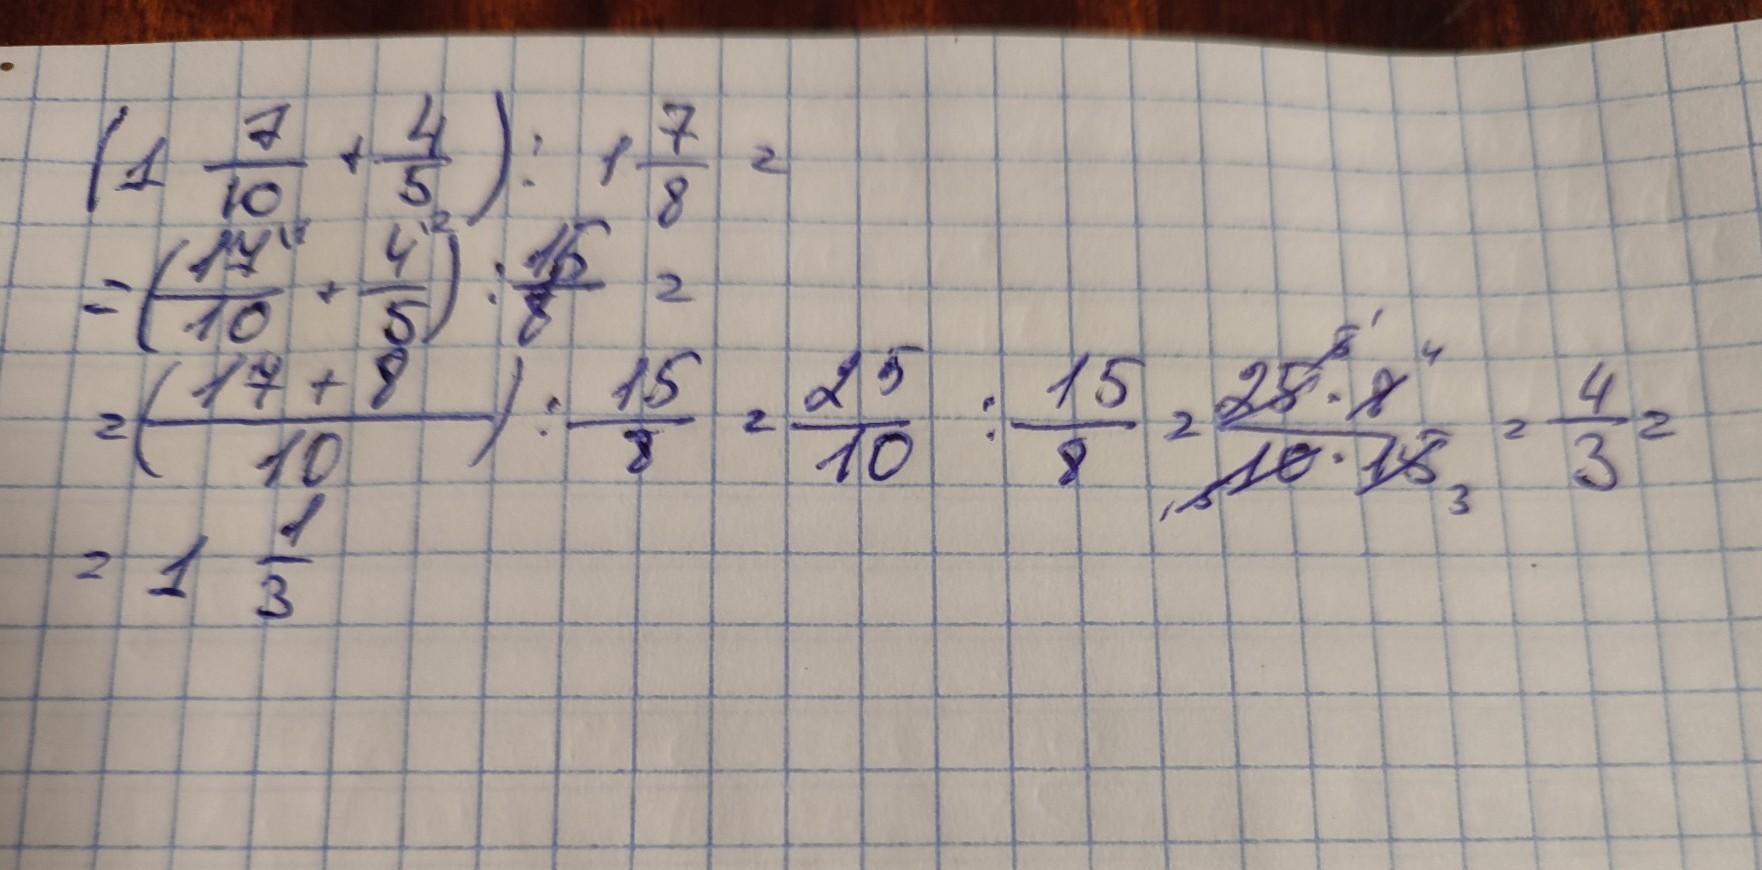 (1 7/10 + 4/5) : 1 7/8 =
= (17/10 + 4/5) : 15/8 =
= ((17 + 8)/10) : 15/8 = 25/10 : 15/8 = (25 · 8)/(10 · 15) = 4/3 =
= 1 1/3